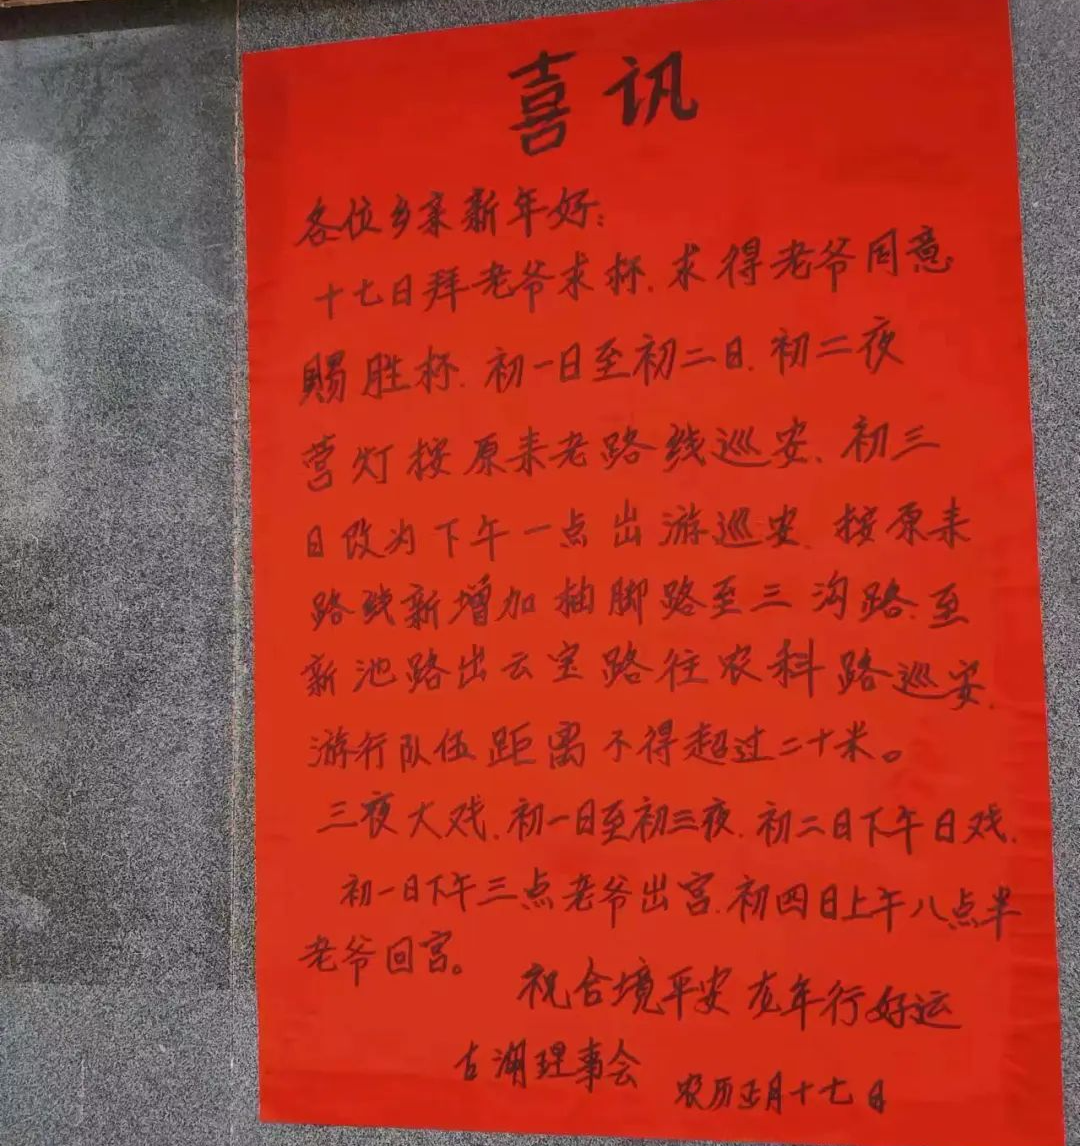 喜讯
各位乡亲新年好:
十七日拜老爷求杯.求得老爷同意
赐胜杯.初一日至初二日.初二夜
营灯按原来老路线巡安、初三
日改为下午一点出游巡安、按原来
路线新增加抽脚路至三沟路.至
新池路出云宝路往农科路巡安.
游行队伍距离不得超过二十米。
三夜大戏.初一日至初三夜.初二日下午日戏.
初一日下午三点老爷出宫.初四日上午八点半
老爷回宫。
祝合境平安 龙年行好运
古湖理事会
农历正月十七日